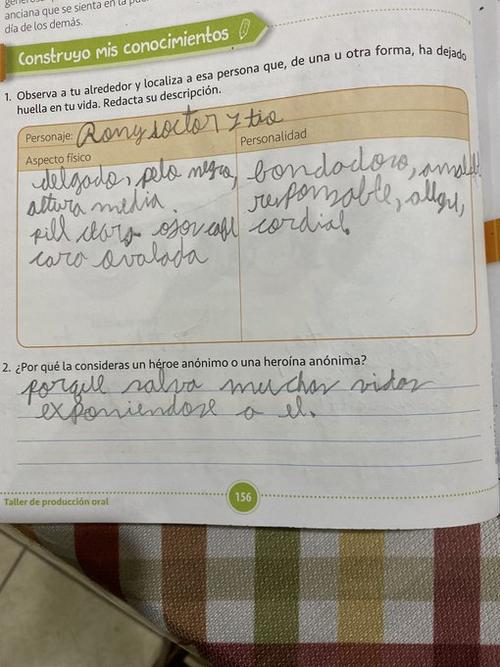 anciana que se sienta en la
día de los demás.
Construyo mis conocimientos
1. Observa a tu alrededor y localiza a esa persona que, de una u otra forma, ha dejado
huella en tu vida. Redacta su descripción.
Personaje: Rony soctor y tio
Aspecto físico
Personalidad
delgado, pelo negro,
altura media.
pill clara ojos cafe
cara ovalada
bondadoso, amable
responsable, allgre,
cordial.
2. ¿Por qué la consideras un héroe anónimo o una heroína anónima?
porque salva muchas vidas
exponiendose a el.
Taller de producción oral
156